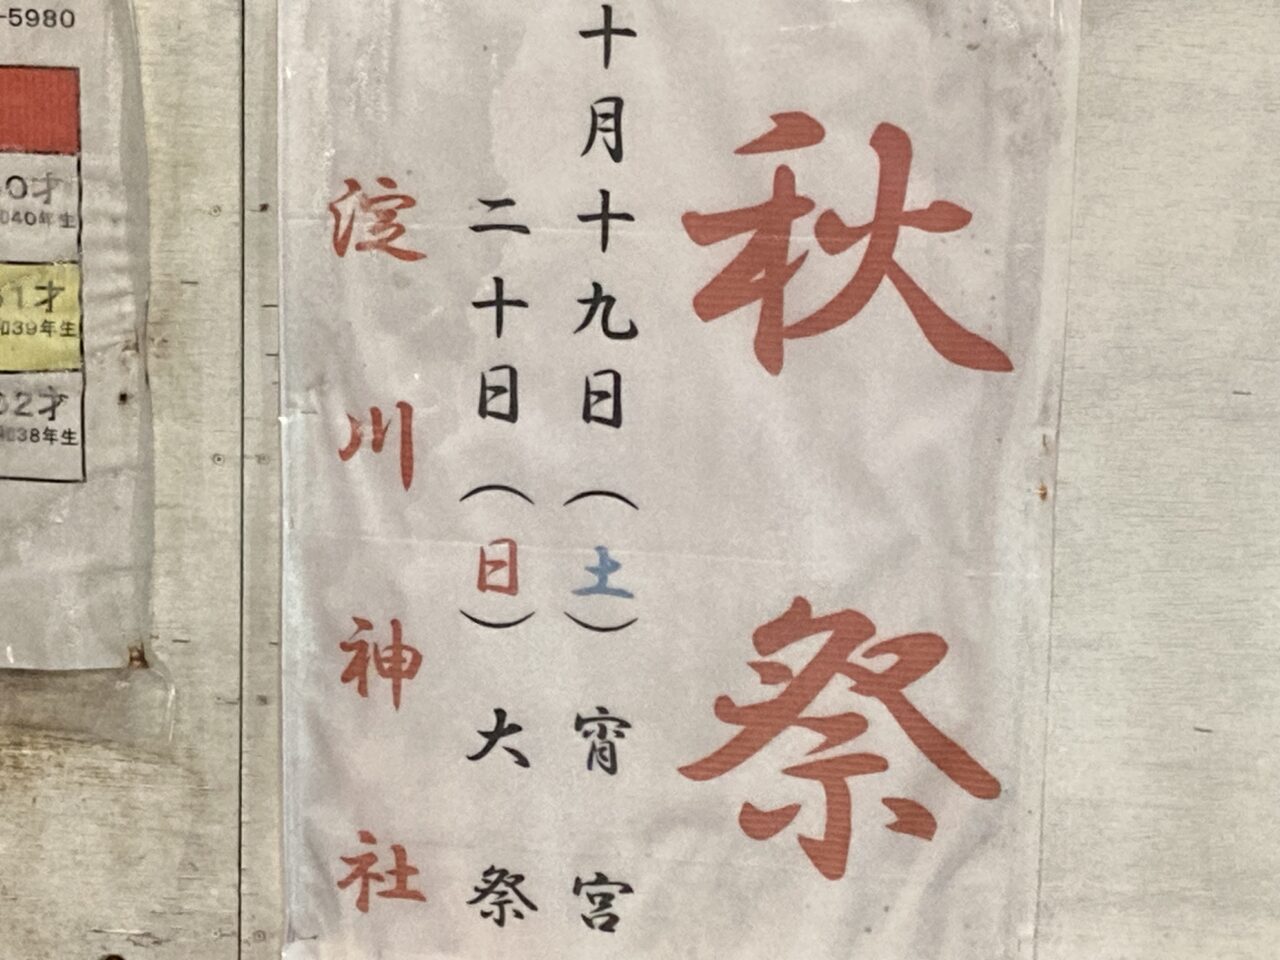 秋祭
十月十九日（土）宵宮
二十日（日）大祭
淀川神社
-5980
0才
40年生
1才
和39年生
2才
和38年生